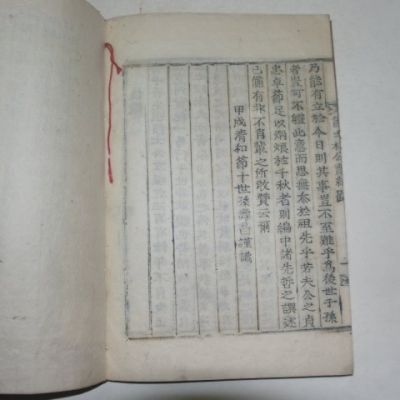 乃能有立於今日則其事豈不至難乎爲後世子孫
者豈可不體此意而思無忝於祖先乎若夫公之貞
忠卓節足以炳烺於千秋者則編中諸先哲之譔述
已備有非不肖輩之所敢贊云爾
甲戌清和節十世孫昌謹識